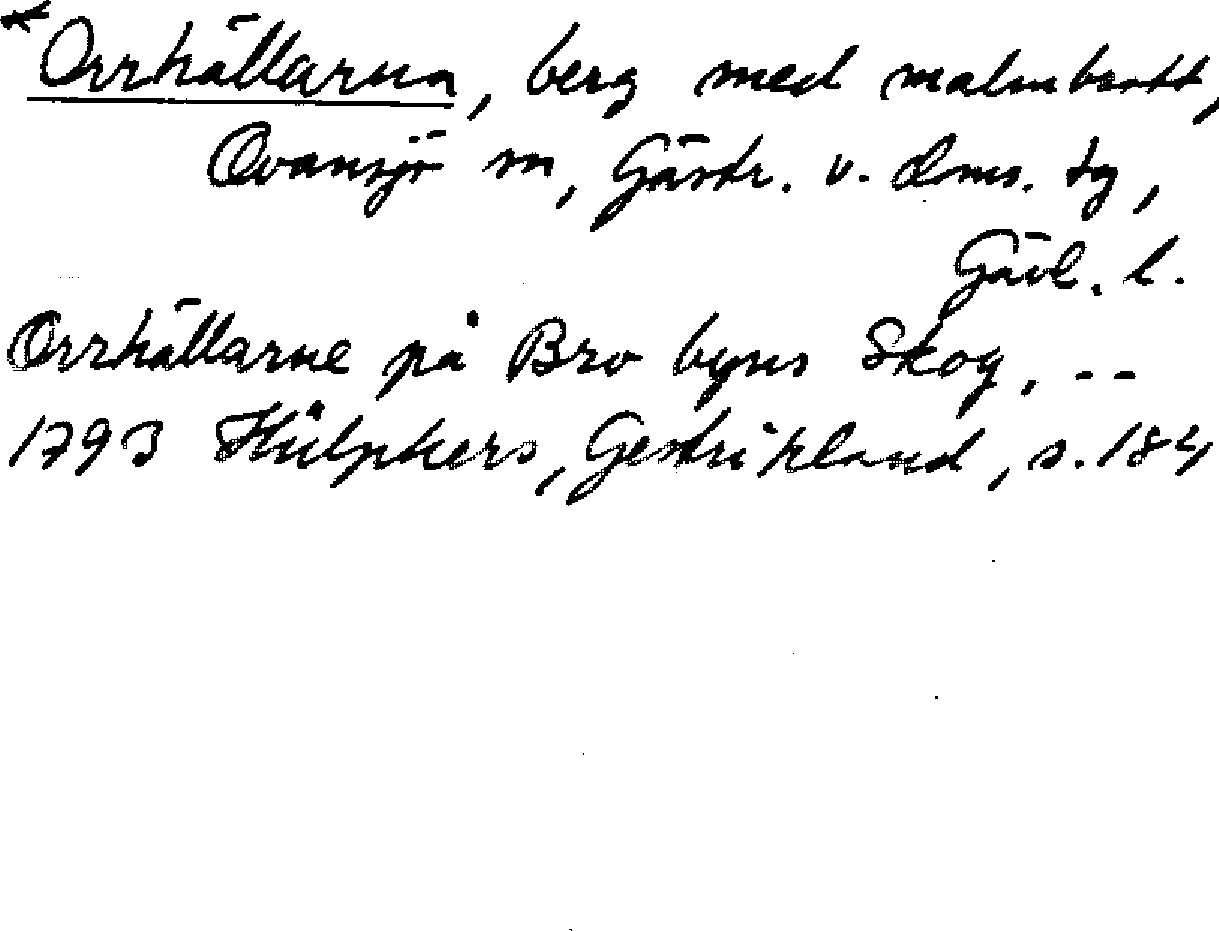 *Orrhällarna, berg med malmbrott,
Ovansjö sn, Gästr. v. dms. tg,
Gävl. l.
Orrhällarne på Bro byns Skog, --
1793 Hülphers, Gestrikland, s. 184